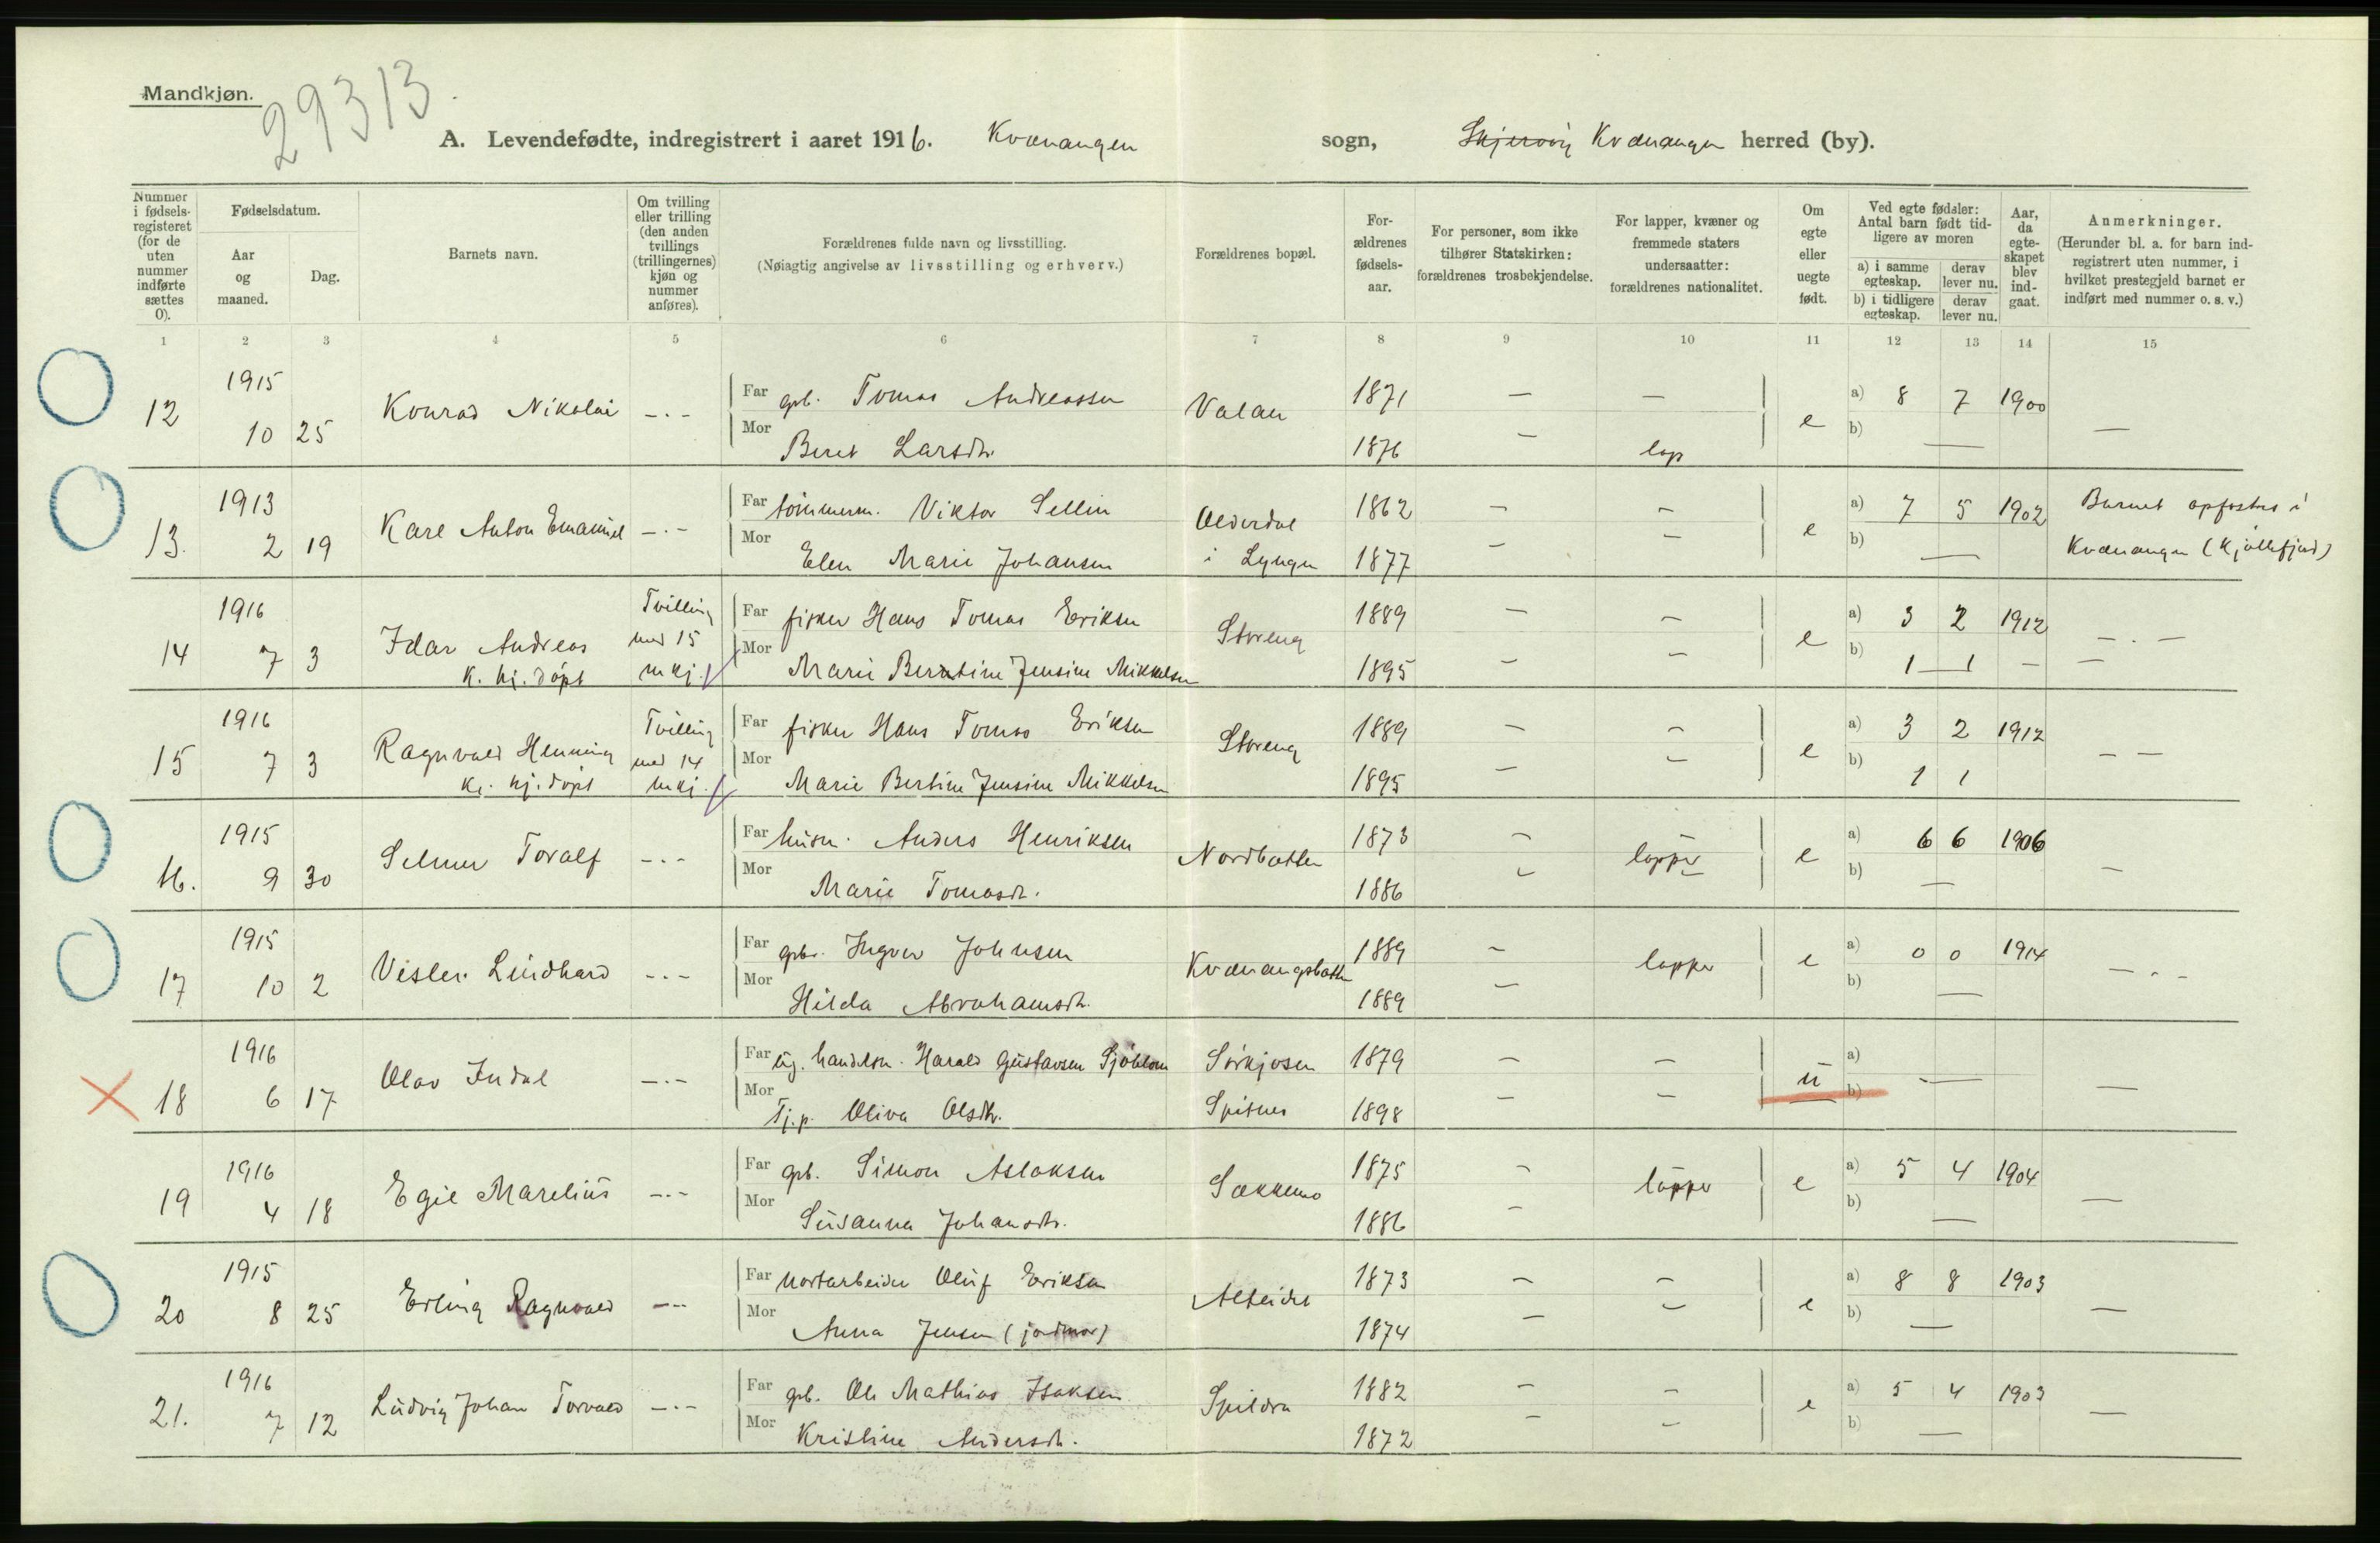 Mandkjøn.
29313.
A. Levendefødte, indregistrert i aaret 1916. Kvænangen sogn, Skjervøy Kvænangen herred (by).
Nummer i fødsels-registeret (for de uten nummer indførte sættes 0).
Fødselsdatum.
Aar og maaned.
Dag.
Barnets navn.
Om tvilling eller trilling (den anden tvillings (trillingernes) kjøn og nummer anføres).
Forældrenes fulde navn og livsstilling.
(Nøiagtig angivelse av livsstilling og erhverv.)
Forældrenes bopæl.
For-ældrenes fødsels-aar.
For personer, som ikke tilhører Statskirken: forældrenes trosbekjendelse.
For lapper, kvæner og fremmede staters undersaatter: forældrenes nationalitet.
Om egte eller uegte født.
Ved egte fødsler: Antal barn født tid-ligere av moren
a) i samme egteskap.
derav lever nu.
b) i tidligere egteskap.
derav lever nu.
Aar, da egte-skapet blev ind-gaat.
Anmerkninger.
(Herunder bl. a. for barn ind-registrert uten nummer, i hvilket prestegjeld barnet er indført med nummer o. s. v.)
1 2 3 4 5 6 7 8 9 10 11 12 13 14 15
12 1915 10 25 Konrad Nikolai -.- Far gb. Tomas Andreassen Valan 1871 — — e a) 8 7 1900 —
Mor Beret Larsdtr. 1876 — lap b) —
13. 1913 2 19 Karl Anton Emanuel -.- Far tömmerm. Viktor Sellin Olderdal 1862 — — e a) 7 5 1902 Barnet opfostres i
Mor Elen Marie Johansen i Lyngen 1877 — — b) — Kvænangen (Kjøllefjord)
14 1916 7 3 Idar Andreas Tvilling med 15 Far fisker Hans Tomas Eriksen Storeng 1889 — — e a) 3 2 1912 -.-
K. hj. döpt mkj. Mor Marie Berntine Jensine Mikkelsen 1895 — — b) 1 1 — —
15 1916 7 3 Ragnvald Henning Tvilling med 14 Far fisker Hans Tomas Eriksen Storeng 1889 — — e a) 3 2 1912 — —
K. hj. döpt mkj. Mor Marie Bertine Jensine Mikkelsen 1895 — — b) 1 1
16. 1915 9 30 Selmer Toralf -.- Far husm. Anders Henriksen Nordbotten 1873 — lapper e a) 6 6 1906 —
Mor Marie Tomasdtr. 1886 — b) —
17 1915 10 2 Lindhard -.- Far gbr. Ingver Johnsen Kvænangsbotten 1889 — lapper e a) 0 0 1914 -.-
Mor Hilda Abrahamsdtr. 1889 — b) —
18 1916 6 17 Olav Indal -.- Far ug. handelsm. Harald Gustavsen Sjöblom Sörkjosen 1879 — — u a) — —
Mor Tj.p. Oliva Olsdtr. Spitnes 1898 — — b)
19 1916 4 18 Egil Marelius -.- Far gb. Simon Aslaksen Sækkemo 1875 — lapper e a) 5 4 1904 —
Mor Susanna Johansdtr. 1886 — b) —
20 1915 8 25 Erling Ragnvald -- Far Oluf Eriksen Alteidet 1873 — — e a) 8 8 1903 —
Mor Anna Jensen (jordmor) 1874 — — b) —
21. 1916 7 12 Ludvig Johan Torvald -.- Far gb. Ole Mathias Isaksen Spildra 1882 — — e a) 5 4 1903 —
Mor Kristine Andersdtr. 1872 — — b) —